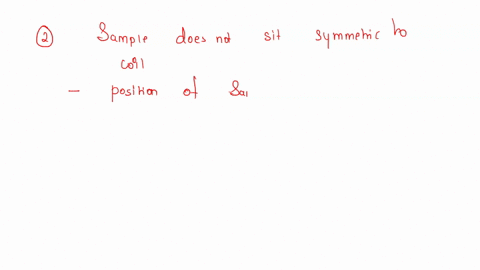 ② Sample does not sit symmetric to
coil
- position of Sa